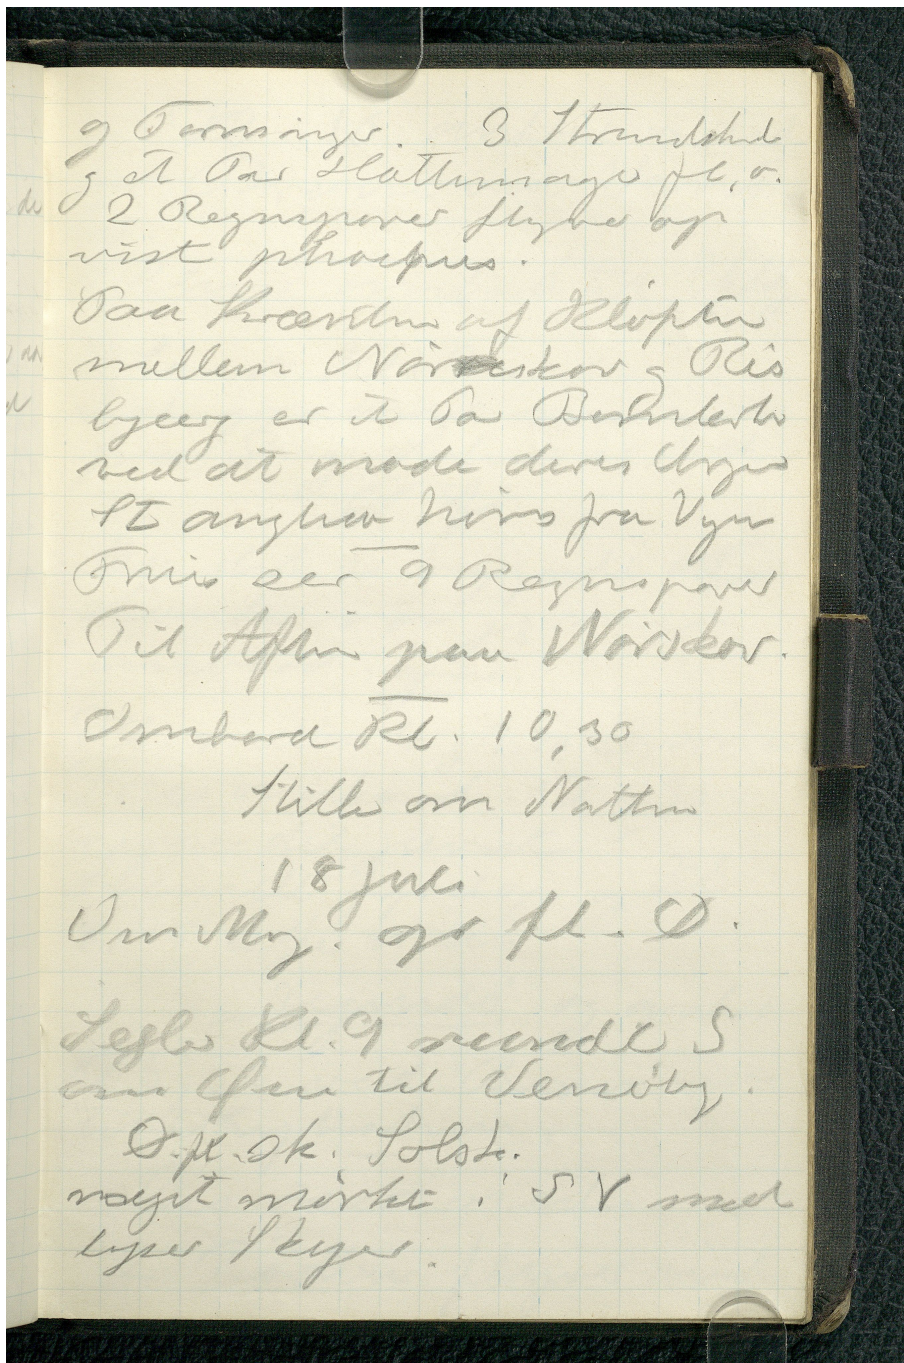 og Tornsanger. . 3 Strandskad
og et Par Hættemager fl. o.
2 Regnspover flyver op
vist phaeopus.
Paa Skrænten af Kløften
mellem Nørreskov og Ris
bjerg er et Par Bomlærker
ved at made deres Unger
St anglica høres fra Vejen
Friis ser 9 Regnspover
Til Aften paa Nørskov.
Ombord Kl. 10,30
Stille om Natten
18 Juli
Om Mg. gr fl. Ø.
Sejler Kl. 9 rundt S
om Øen til Vensøby.
Ø. fl. sk. Solsk.
noget mørkt i SV med
lyser Skyer.